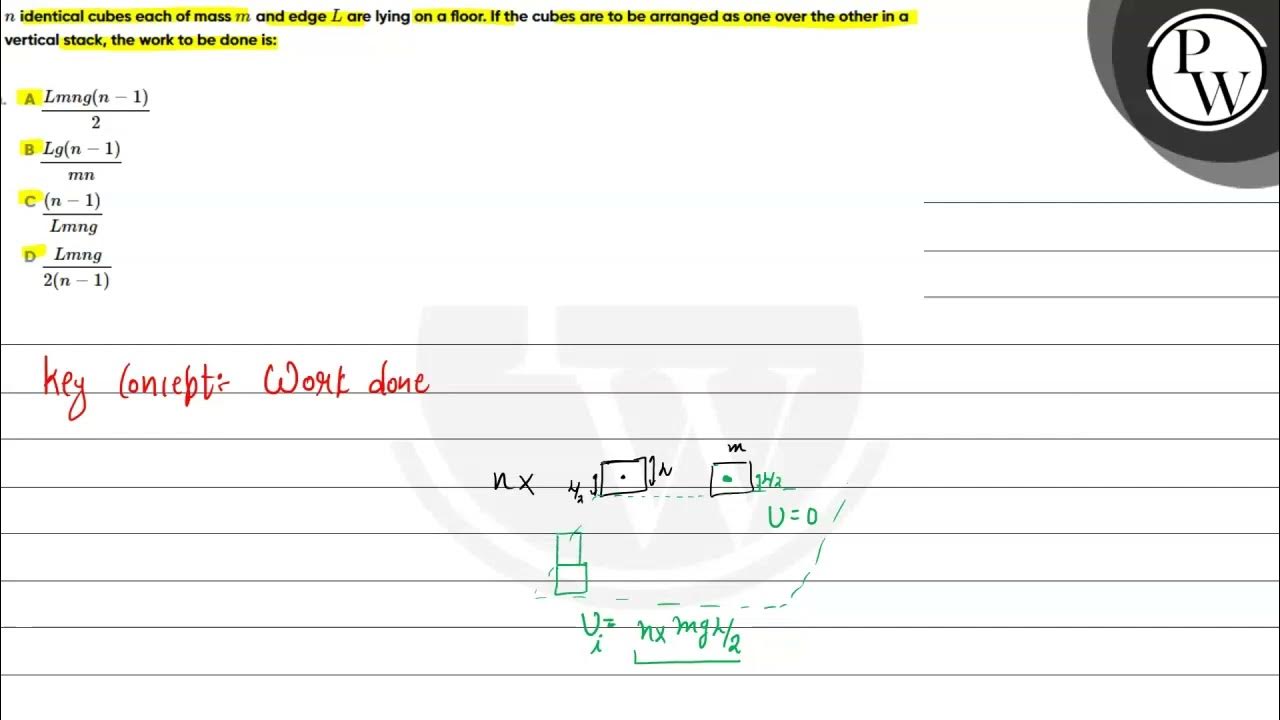 n identical cubes each of mass m and edge L are lying on a floor. If the cubes are to be arranged as one over the other in a
vertical stack, the work to be done is:
A Lmng(n − 1)
2
B Lg(n − 1)
mn
C (n − 1)
Lmng
D Lmng
2(n − 1)
PW
Key Concept:- Work done
m
n×
U = 0
U_i = n× mg